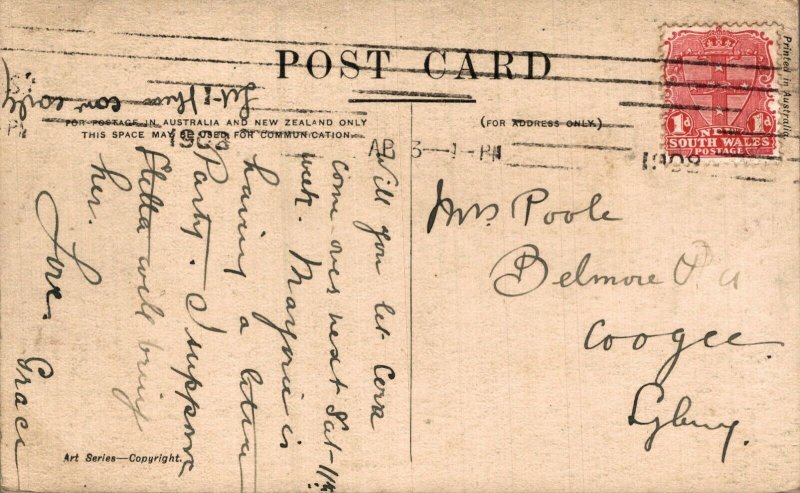 POST CARD
Printed in Australia.
FOR POSTAGE IN AUSTRALIA AND NEW ZEALAND ONLY
THIS SPACE MAY BE USED FOR COMMUNICATION.
(FOR ADDRESS ONLY.)
1d N 1d
SOUTH WALES
POSTAGE
3 - 1 - PM
1908
1908
Will you let Cora
come over next Sat - 11th
week. Marjorie is
having a
Party. I suppose
will bring
her.
Love.
Grace
Let I have
Mrs Poole
Belmore Rd
Coogee.
Sydney.
Art Series—Copyright.